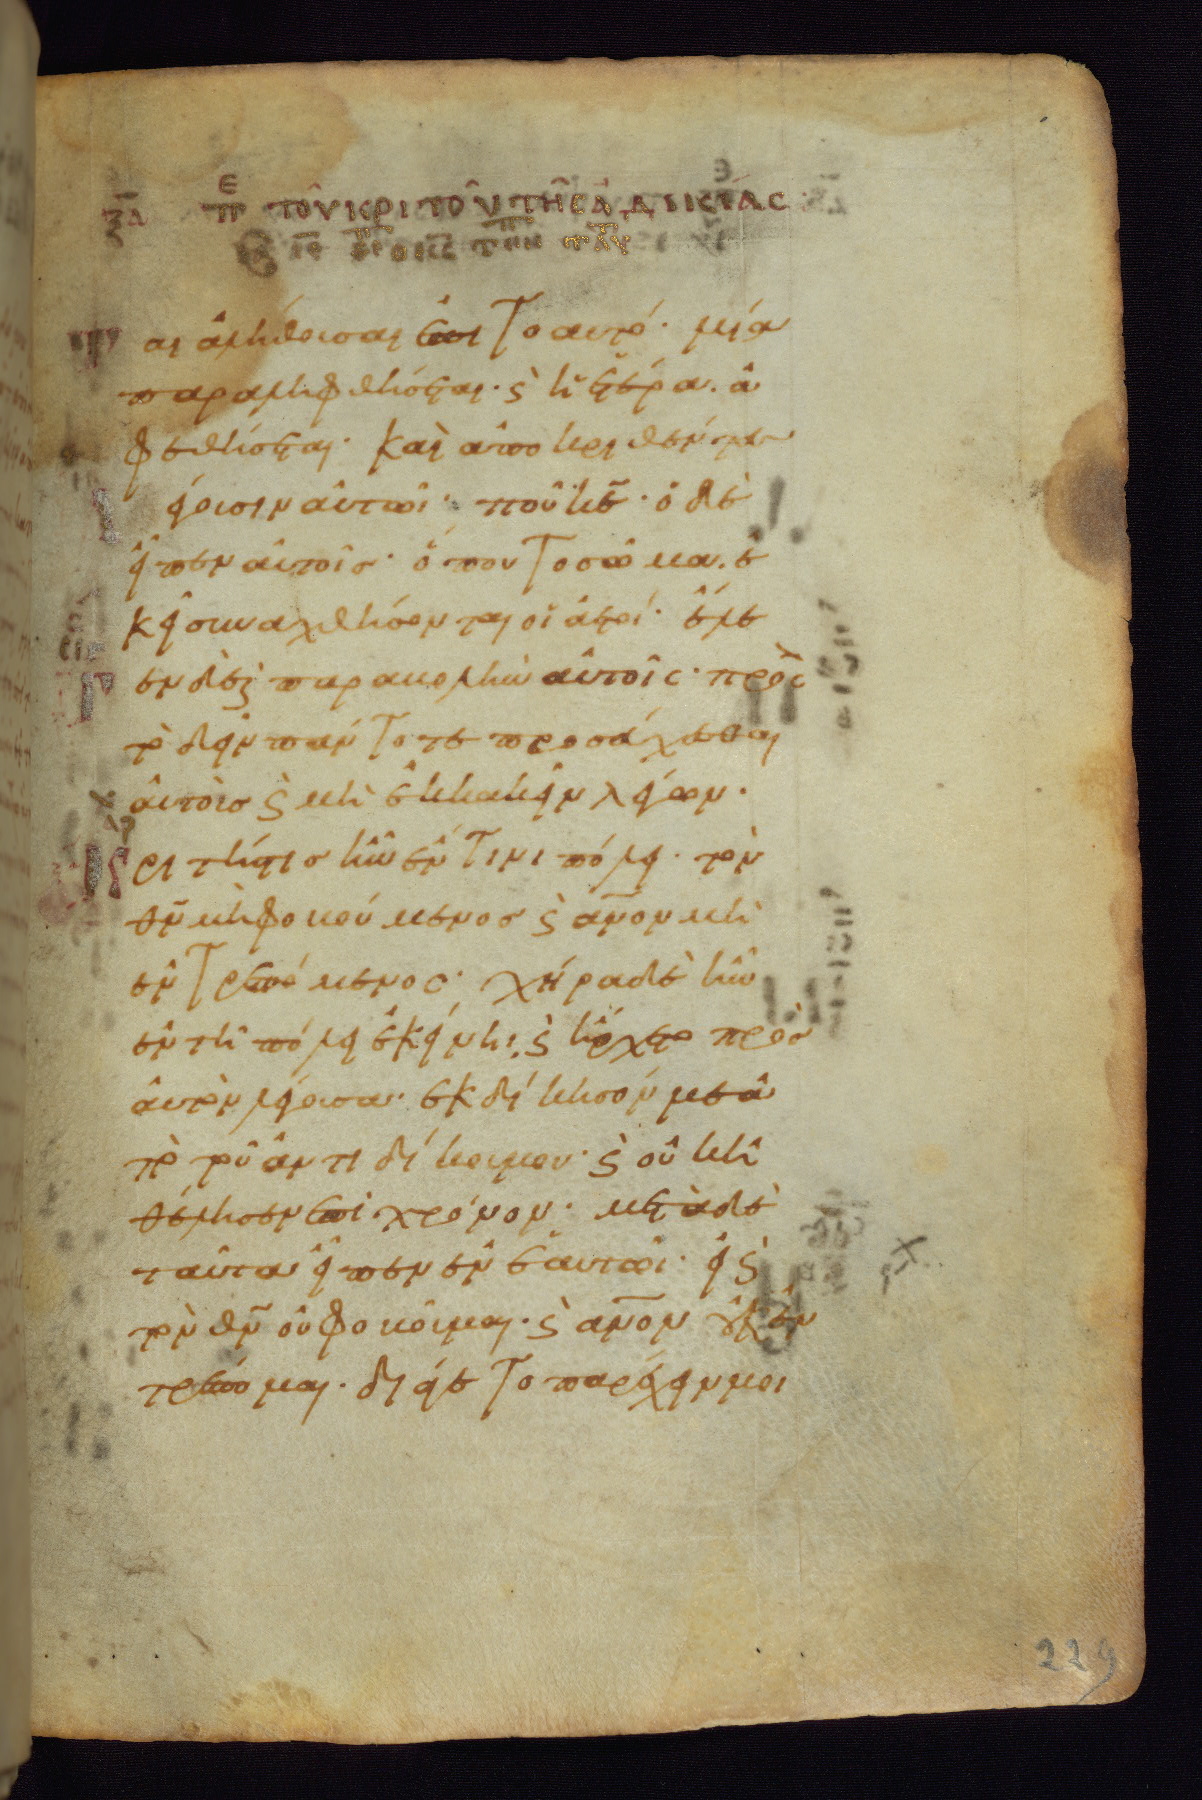 ξα πε τοῦ κριτοῦ τῆς ἀδικίας
αι ἀλήθουσαι ἐπι το αυτό· μία
παραληφθήσεται· ϛ ἡ ἑτέρα. ἀ
φεθήσεται· και ἀποκριθέντες λε
γουσιν αὐτῶι· ποῦ κε̅· ὁ δὲ
εἶπεν αὐτοῖς· ὅπου το σῶμα. ἐ
κεῖ συναχθήσονται οἱ ἀετοί· ἔλε
γεν δὲ ϛ παραβολὴν αὐτοῖς· πρὸς
τὸ δεῖν πάντοτε προσεύχεσθαι
αὐτοὺς ϛ μὴ ἐκκακεῖν λέγων·
κριτήτις ἦν ἔν τινι πόλει· τὸν
θν̅ μὴ φοβούμενος ϛ ανον μὴ
ἐντρεπόμενος· χήρα δὲ ἦν
ἐν τῆ πόλει ἐκείνηι, ϛ ἤρχετο πρὸς
αὐτὸν λέγουσα· ἐκδίκησόν με ἀ
πὸ τοῦ ἀντιδίκου μου· ϛ οὐκ ἠ
θέλησεν ἐπὶ χρόνον· μετὰ δὲ
ταῦτα εἶπεν ἐν ἑαυτῶι· εἰ ϛ
τὸν θν̅ οὐ φοβοῦμαι· ϛ ανον οὐκ ἐν
τρέπομαι· διά γε το παρέχειν μοι
229